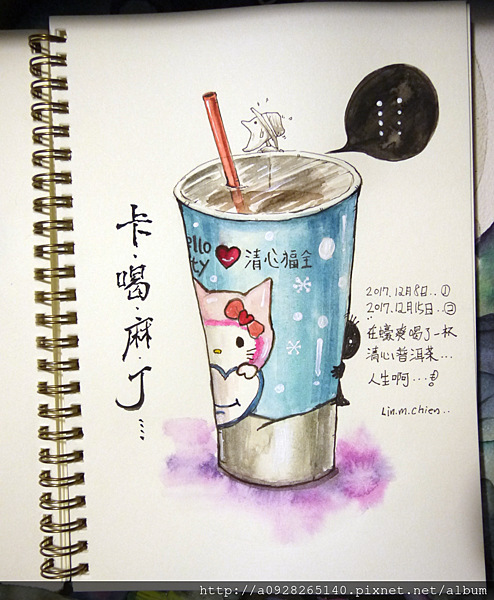 卡.喝.麻.丁....
ello
ty
清心福全
2017.12月8日..①
2017.12月15日..②
在蠔爽喝了一杯
清心普洱茶...
人生啊...
Lin.m.chien..
http://a0928265140.pixnet.net/album